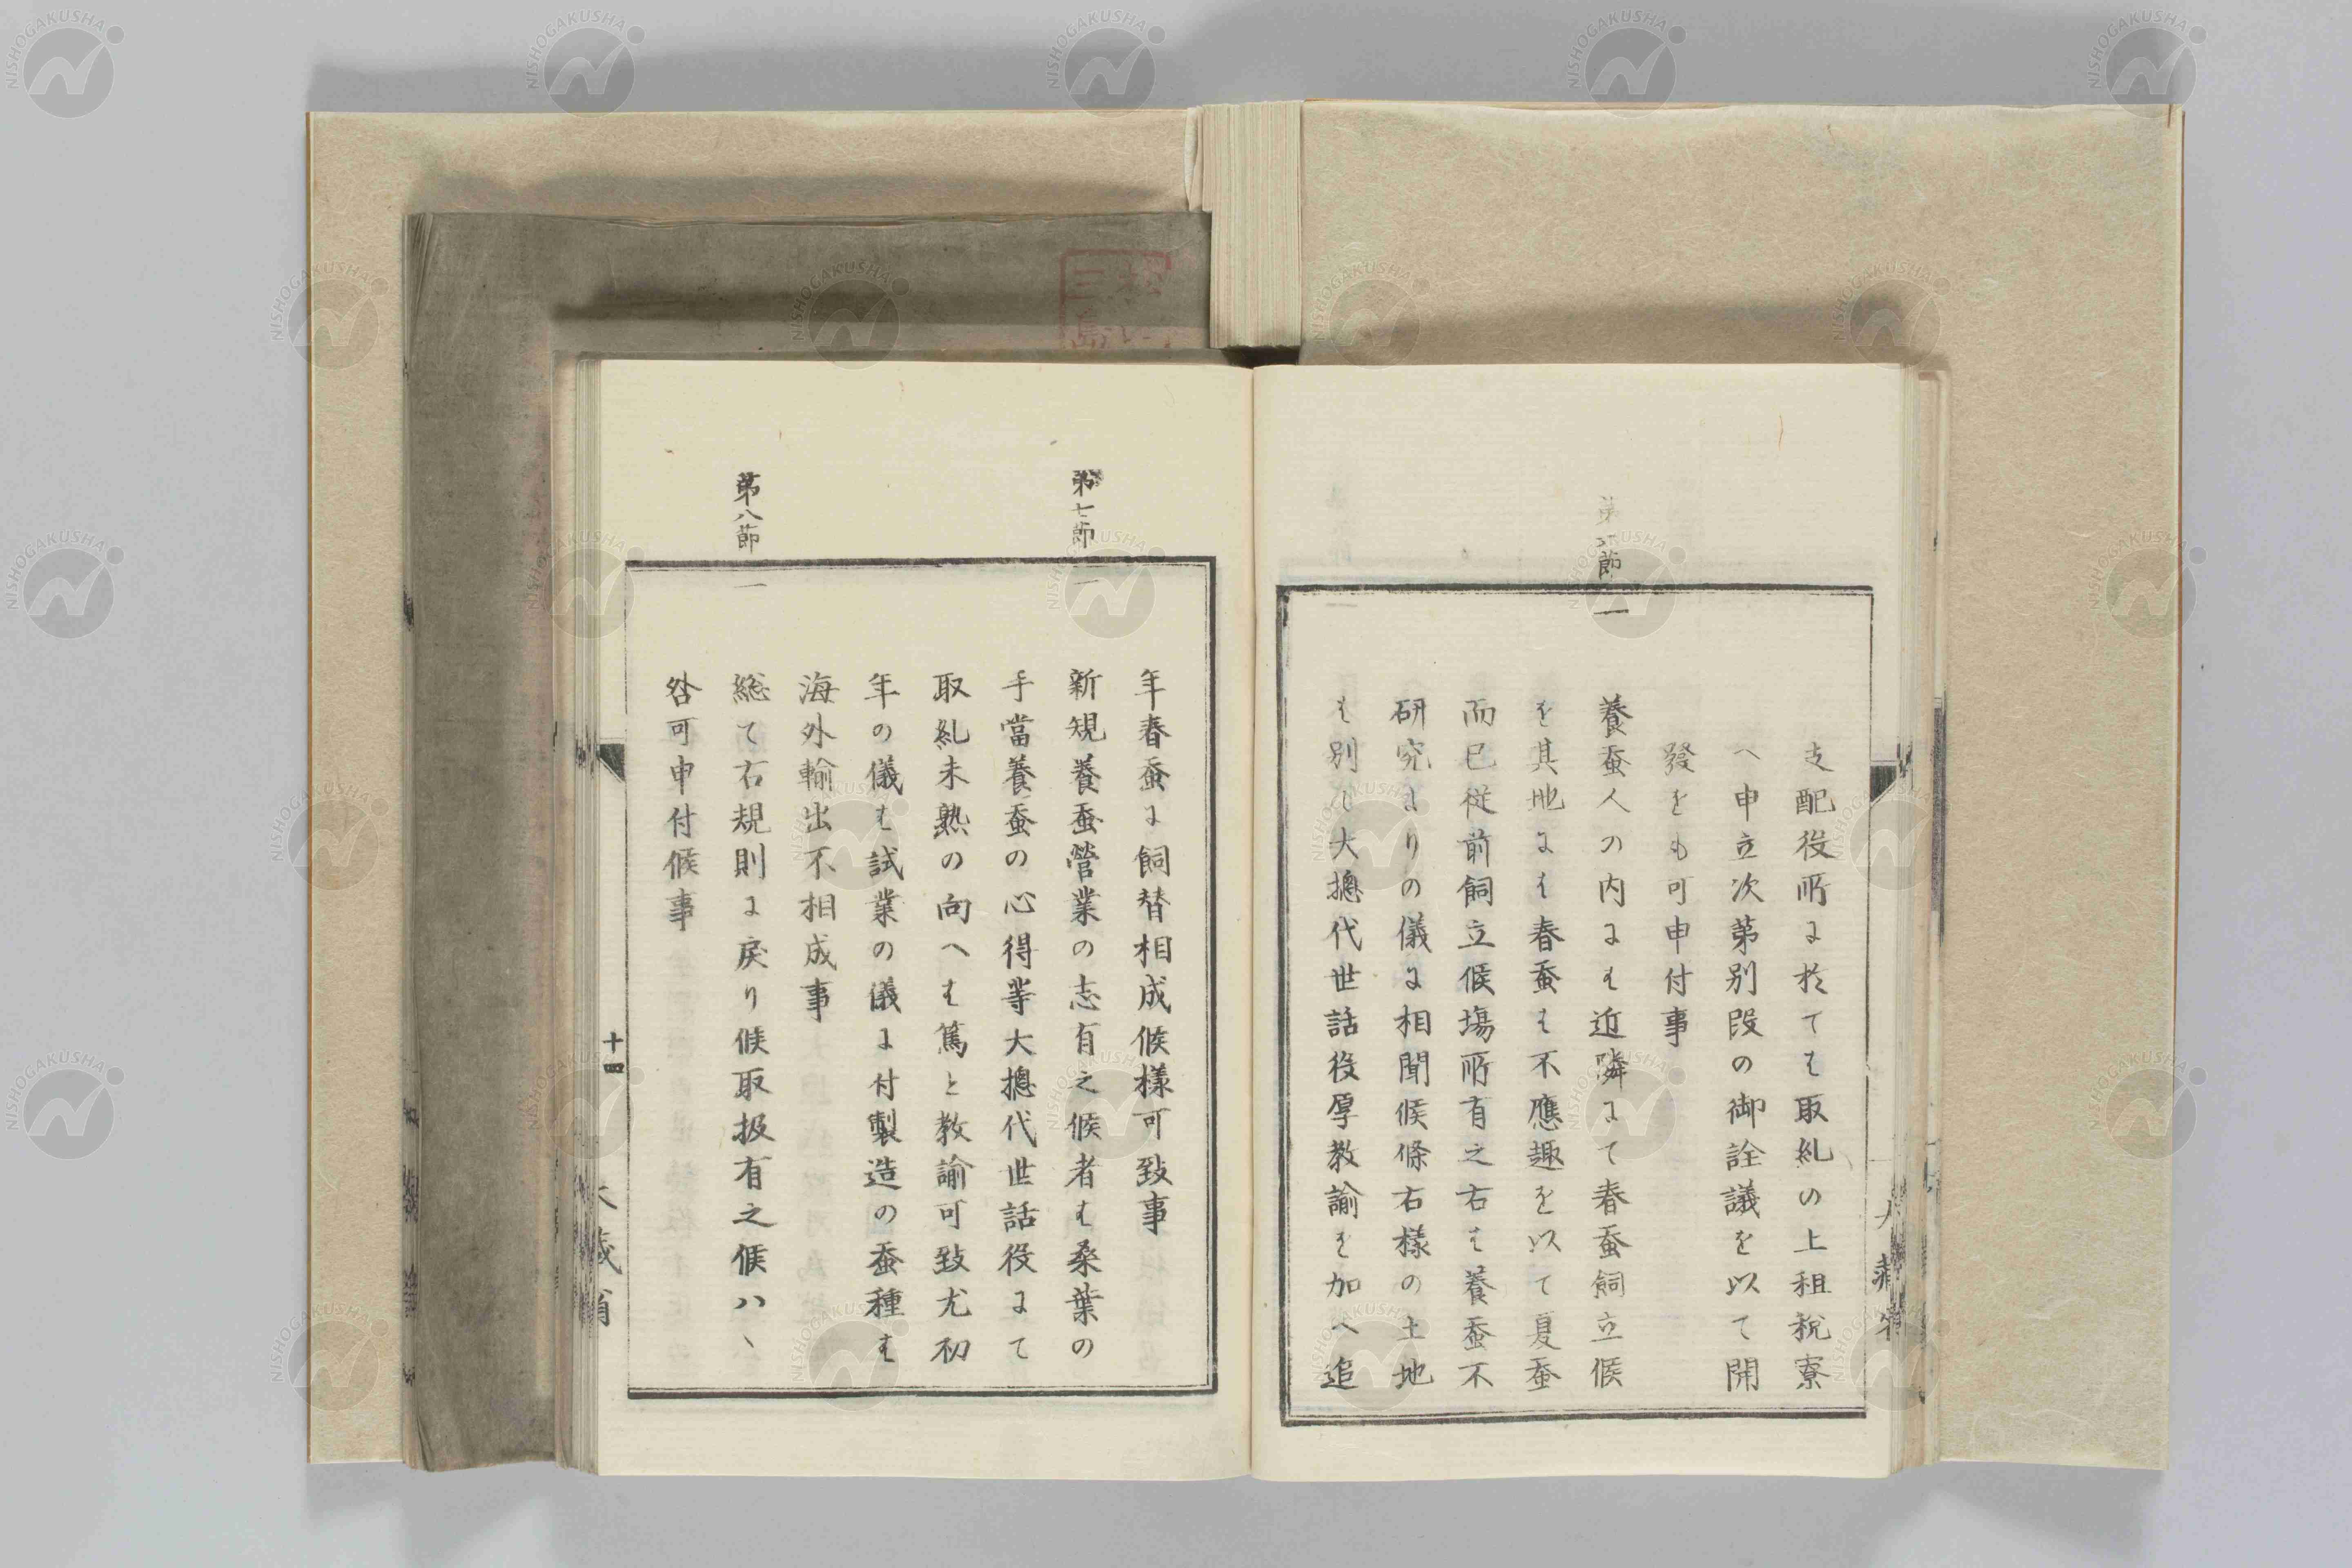 支配役所に於ても取糺の上租税寮
へ申立次第別段の御詮議を以て開
發をも可申付事
第六節
一
養蚕人の内にも近隣にて春蚕飼立候
を其地にも春蚕も不應趣を以て夏蚕
而已従前飼立候場所有之右も養蚕不
研究よりの儀に相聞候條右様の土地
も別て大摠代世話役厚教諭を加へ追
大藏省
年春蚕に飼替相成候様可致事
第七節
一
新規養蚕營業の志有之候者も桑葉の
手當養蚕の心得等大摠代世話役にて
取糺未熟の向へも篤と教諭可致尤初
年の儀も試業の儀に付製造の蚕種も
海外輸出不相成事
第八節
一
総て右規則に戻り候取扱有之候ハヽ
咎可申付候事
十四
大藏省
NISHOGAKUSHA